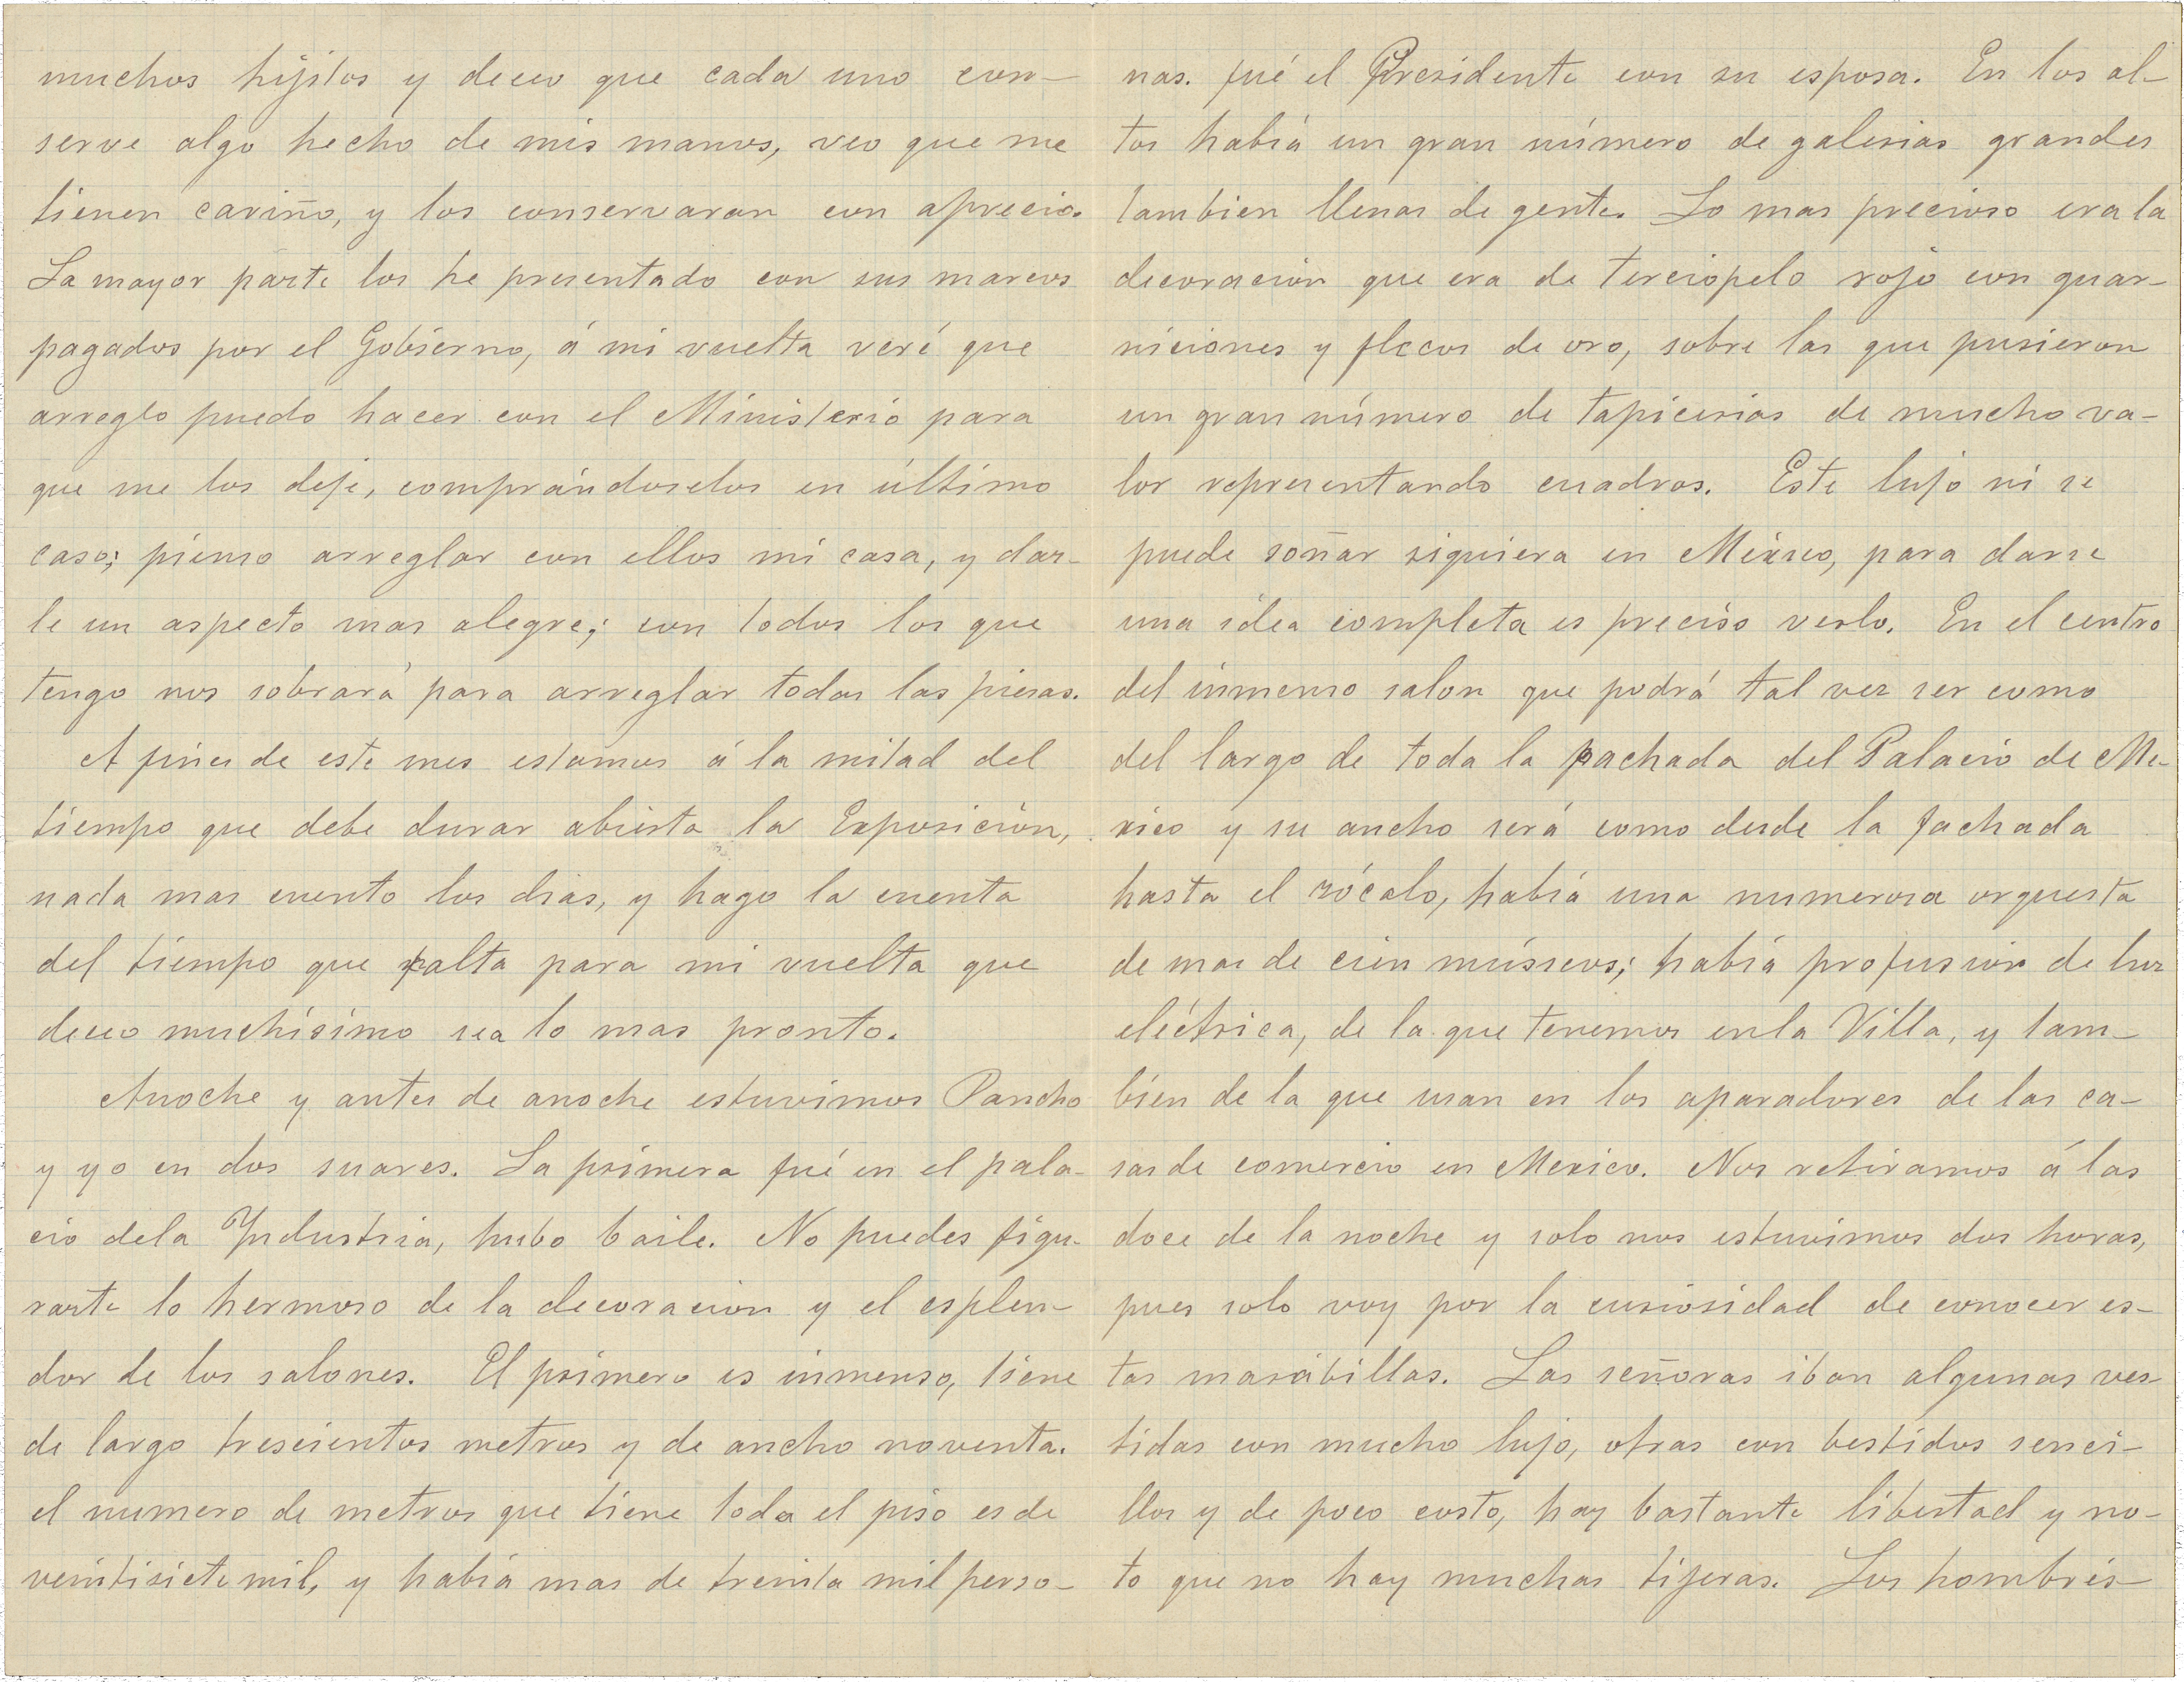 muchos hijitos y deceo que cada uno con-
serve algo hecho de mis manos, veo que me
tienen cariño, y los conservaran con aprecio.
La mayor parte los he presentado con sus marcos
pagados por el Gobierno, á mi vuelta veré que
arreglo puedo hacer con el Ministerio para
que me los deje, comprándoselos en último
caso; pienso arreglar con ellos mi casa, y dar-
le un aspecto mas alegre; con todos los que
tengo nos sobrará para arreglar todas las piesas.
A fines de este mes estamos á la mitad del
tiempo que debe durar abierta la Exposición,
nada mas cuento los dias, y hago la cuenta
del tiempo que falta para mi vuelta que
deceo muchísimo sea lo mas pronto.
Anoche y antes de anoche estuvimos Pancho
y yo en dos suares. La primera fué en el pala-
cio dela Yndustria, hubo baile. No puedes figu-
rarte lo hermoso de la decoracion y el esplen-
dor de los salones. El primero es inmenso, tiene
de largo trescientos metros y de ancho noventa.
el numero de metros que tiene todo el piso es de
veintisiete mil, y habia mas de treinta mil perso-
nas. fué el Presidente con su esposa. En los al-
tos habiá un gran número de galerias grandes
tambien llenas de gente. Lo mas precioso era la
decoración que era de terciopelo rojo con guar-
niciones y flecos de oro, sobre las que pusieron
un gran número de tapicerias de mucho va-
lor representando cuadros. Este lujo ni se
puede soñar siquiera en México, para darse
una idea completa es preciso verlo. En el centro
del inmenso salon que podrá tal vez ser como
del largo de toda la fachada del Palacio de Me-
xico y su ancho será como desde la fachada
hasta el zócalo, habiá una numerosa orquesta
de mas de cien músicos; habiá profusion de luz
eléctrica, de la que tenemos en la Villa, y tam-
bien de la que usan en los aparadores de las ca-
sas de comercio en Mexico. Nos retiramos á las
doce de la noche y solo nos estuvimos dos horas,
pues solo voy por la curiosidad de conocer es-
tas marábillas. Las señoras iban algunas ves-
tidas con mucho lujo, otras con bestidos senci-
llos y de poco costo, hay bastante libertad y no-
to que no hay muchas tijeras. Los hombres